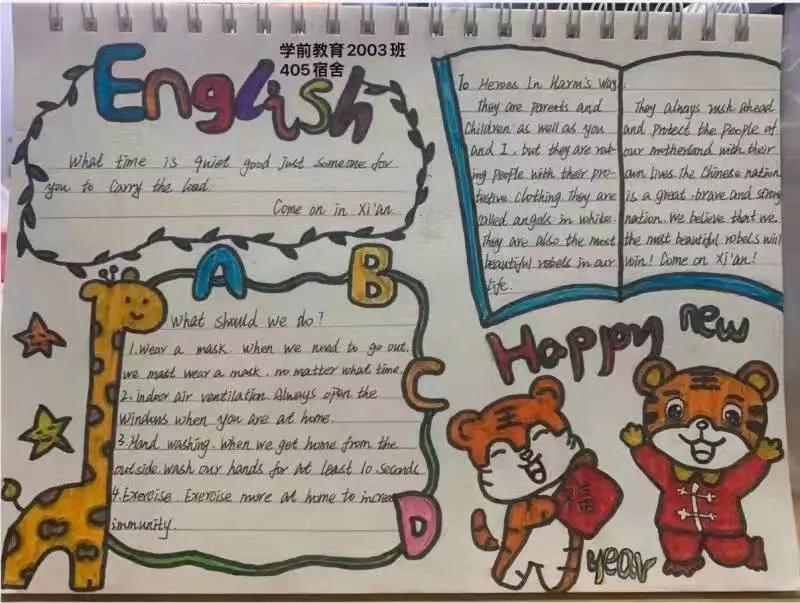 学前教育2003班
405宿舍
English
What time is quiet good just someone for
you to carry the load.
Come on in Xi'an.
To Heroes In Harm's Way:
They are parents and
Children as well as you
and I, but they are rob-
ing people with their pro-
testive clothing. They are
called angels in white.
They are also the most
beautiful robels in our
life.
They always rush ahead
and protect the people of
our motherland with their
own lives. The Chinese nation
is a great, brave and strong
nation. We believe that we.
the most beautiful robels will
win! Come on Xi'an!
A
B
C
D
What should we do?
1. Wear a mask. When we need to go out,
we mast wear a mask, no matter what time.
2. indoor air ventilation. Always open the
windows when you are at home.
3. Hand washing. When we get home from the
outside. wash our hands for at least 10 seconds
4. Exercise. Exercise more at home to increase
immunity.
Happy new
福
year